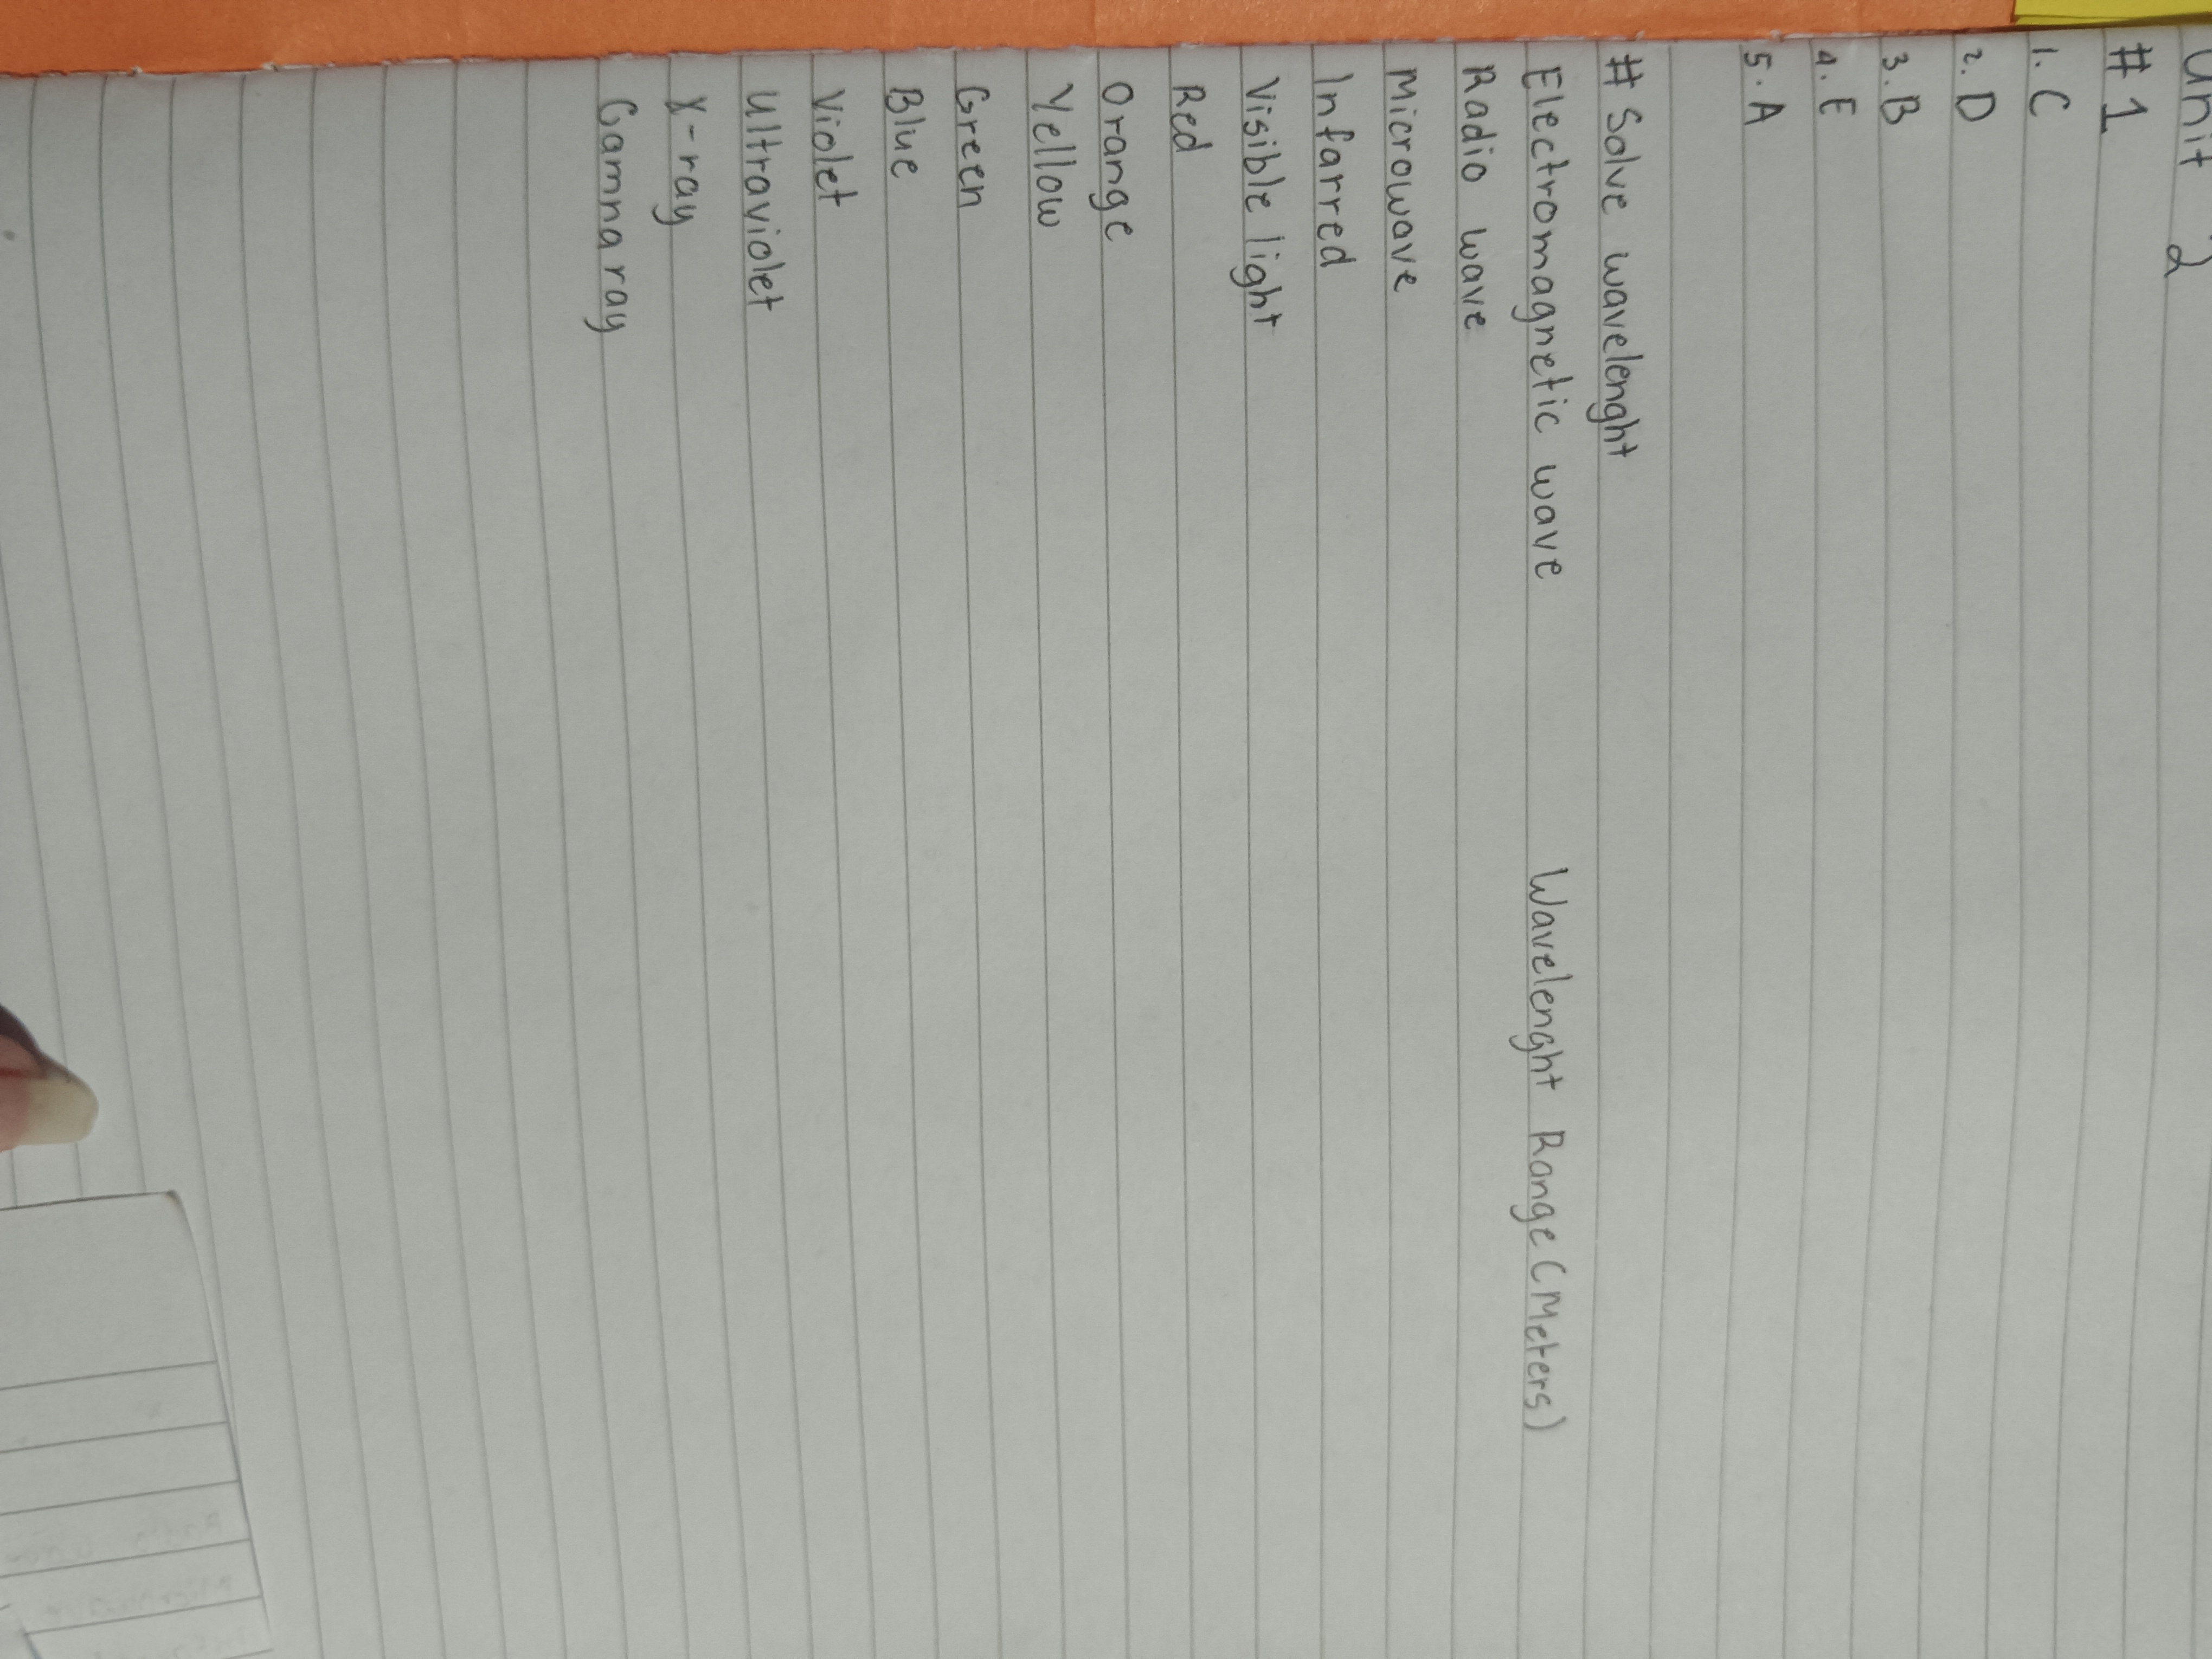 Unit 2
# 1
1. C
2. D
3. B
4. E
5. A
# Solve wavelenght
Electromagnetic wave Wavelenght Range (Meters)
Radio wave
Microwave
Infarred
Visible light
Red
Orange
Yellow
Green
Blue
Violet
Ultraviolet
X-ray
Gamna ray